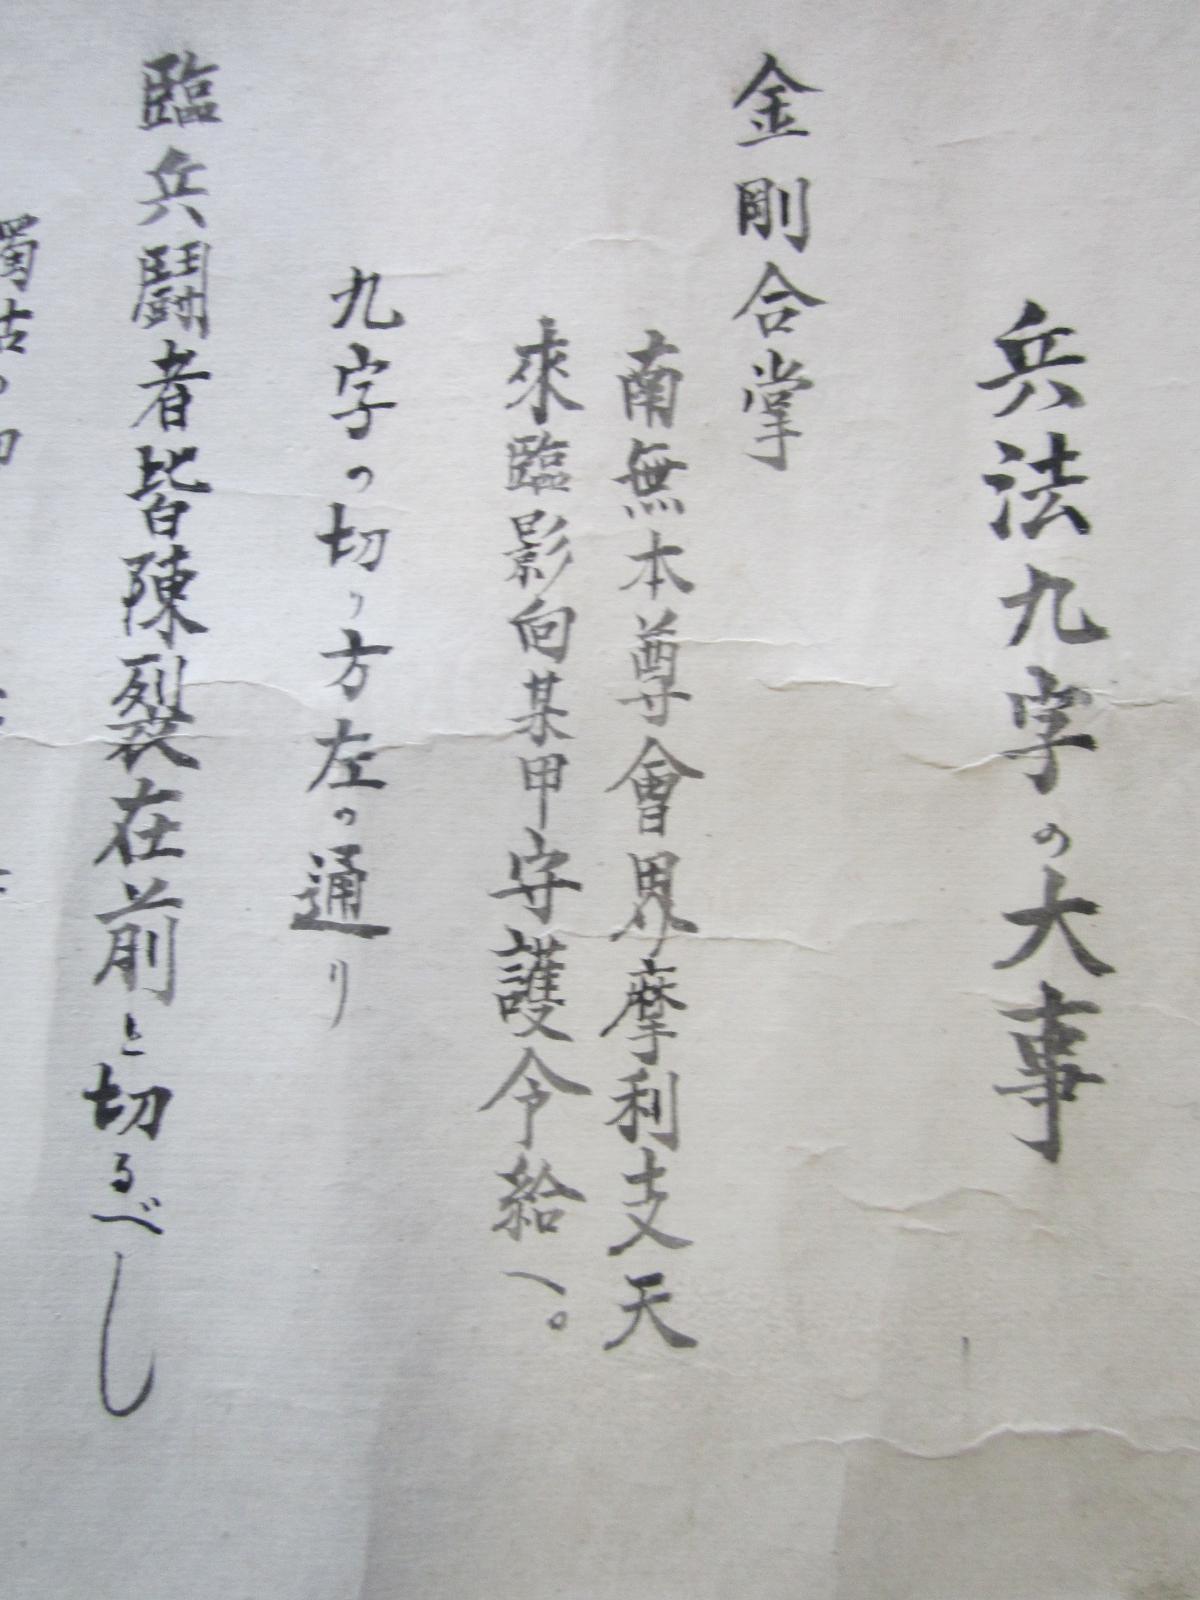 兵法九字の大事
金剛合掌
南無本尊會界摩利支天
來臨影向某甲守護令給へ。
九字の切り方左の通り
臨兵鬪者皆陳裂在前と切るべし